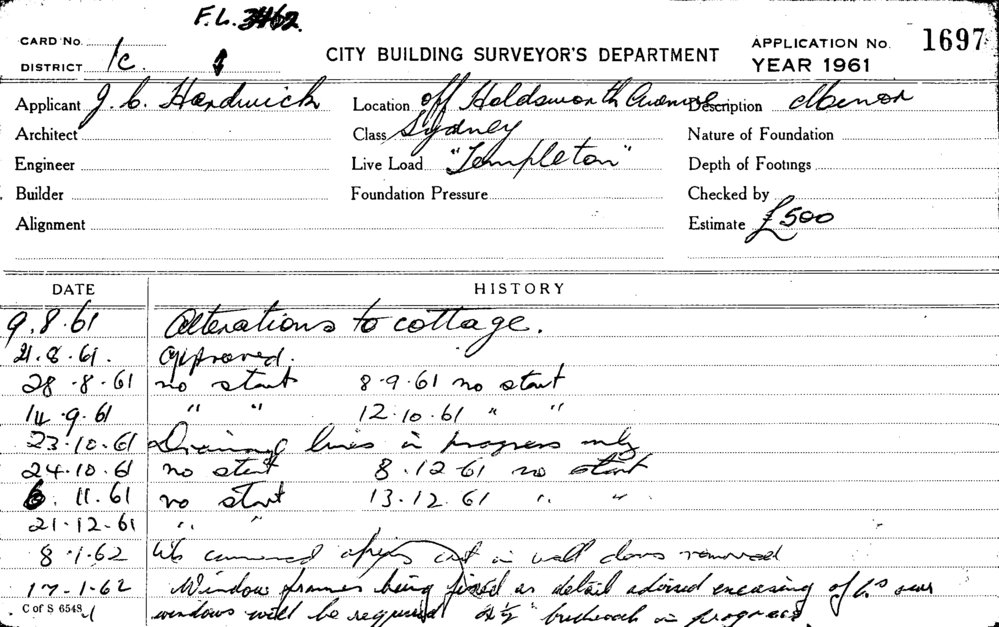 F.L. 3462.
CARD No. 1c.
DISTRICT
CITY BUILDING SURVEYOR'S DEPARTMENT
APPLICATION No. 1697
YEAR 1961
Applicant J. C. Hardwick Location off Holdsworth Avenue Description Minor
Architect Class Sydney Nature of Foundation
Engineer Live Load "Templeton" Depth of Footings
Builder Foundation Pressure Checked by
Alignment Estimate £500
DATE HISTORY
9.8.61 Alterations to cottage.
21.8.61. Approved.
28.8.61 no start 8.9.61 no start
14.9.61 " " 12.10.61 " "
23.10.61 Drainage lines in progress only
24.10.61 no start 8.12.61 no start
6.11.61 no start 13.12.61 " "
21.12.61 " "
8.1.62 commenced cut in wall doors removed
17.1.62 Window frames being fixed as detail advised encasing of over
C of S 6548 windows will be required 4½" brickwork in progress